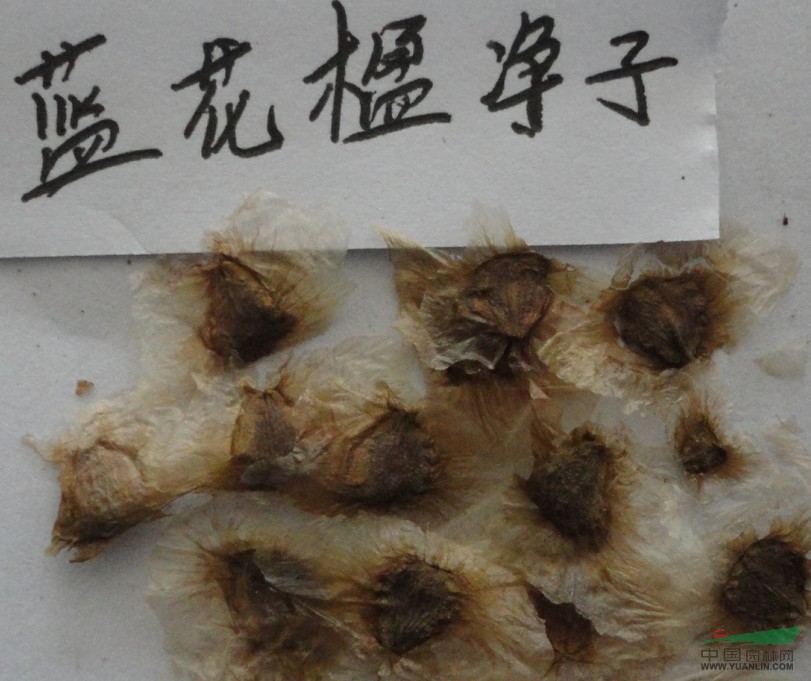 蓝花楹净子
中国园林网
WWW.YUANLIN.COM